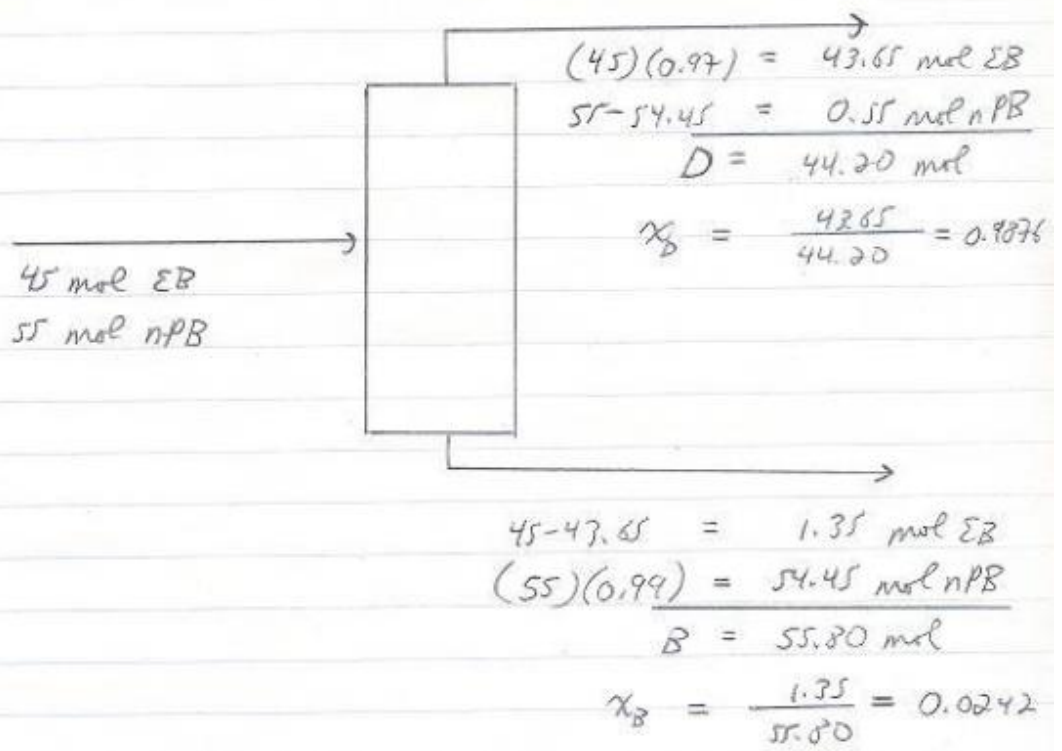 (45)(0.97) = 43.65 mol EB
55-54.45 = 0.55 mol nPB
D = 44.20 mol
x_D = 43.65 / 44.20 = 0.9876
45 mol EB
55 mol nPB
45-43.65 = 1.35 mol EB
(55)(0.99) = 54.45 mol nPB
B = 55.80 mol
x_B = 1.35 / 55.80 = 0.0242